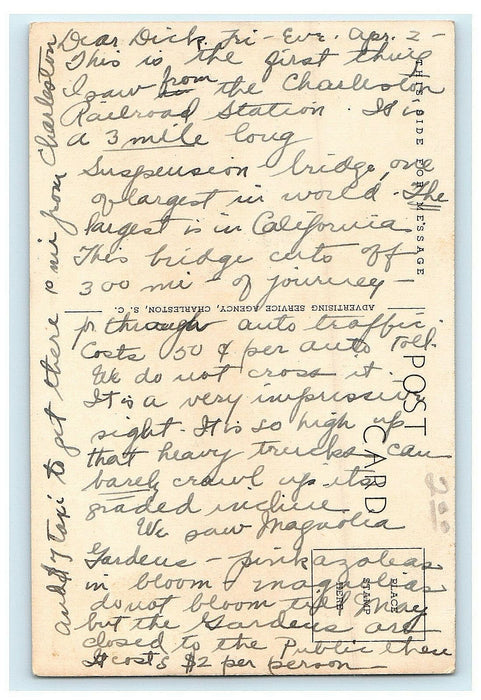 Dear Dick, Fri - Eve. Apr. 2 -
This is the first thing
I saw from the Charleston
Railroad Station. It is
a 3 mile long
Suspension bridge, one
of largest in world. The
largest is in California
This bridge cuts off
300 mi - of journey -
for through auto traffic.
Costs 50 ¢ per auto Toll
We do not cross it.
It is a very impressive
sight. It is so high up
that heavy trucks can
barely crawl up its
graded incline
We saw Magnolia
Gardens - pink azaleas
in bloom - magnolias
do not bloom till May
but the Gardens are
closed to the Public then
It costs $2 per person -
and $7 taxi to get there 10 mi from Charleston
THIS SIDE FOR MESSAGE
ADVERTISING SERVICE AGENCY, CHARLESTON, S. C.
POST CARD
PLACE
STAMP
HERE
2.00